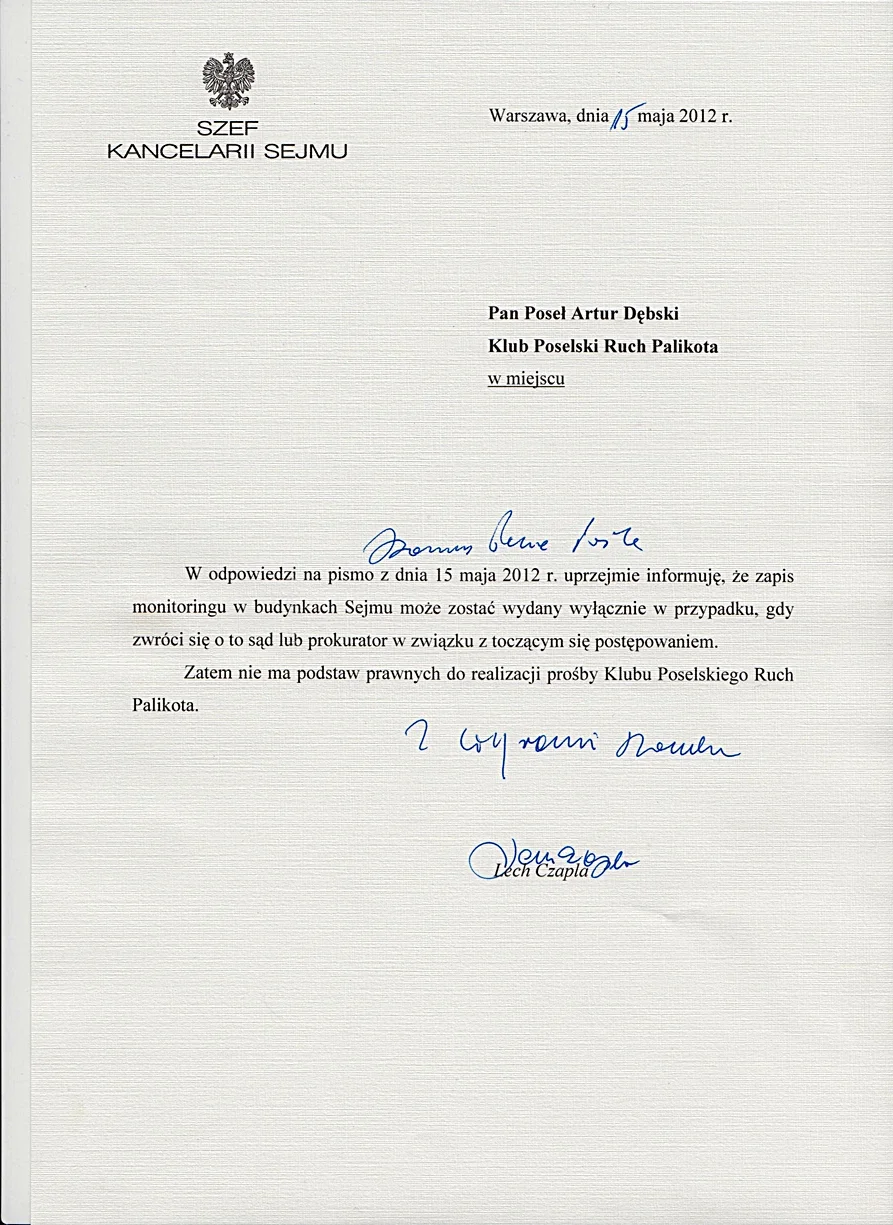 SZEF
KANCELARII SEJMU
Warszawa, dnia 15 maja 2012 r.
Pan Poseł Artur Dębski
Klub Poselski Ruch Palikota
w miejscu
Szanowny Panie Pośle
W odpowiedzi na pismo z dnia 15 maja 2012 r. uprzejmie informuję, że zapis
monitoringu w budynkach Sejmu może zostać wydany wyłącznie w przypadku, gdy
zwróci się o to sąd lub prokurator w związku z toczącym się postępowaniem.
Zatem nie ma podstaw prawnych do realizacji prośby Klubu Poselskiego Ruch
Palikota.
Z wyrazami szacunku
Lech Czapla